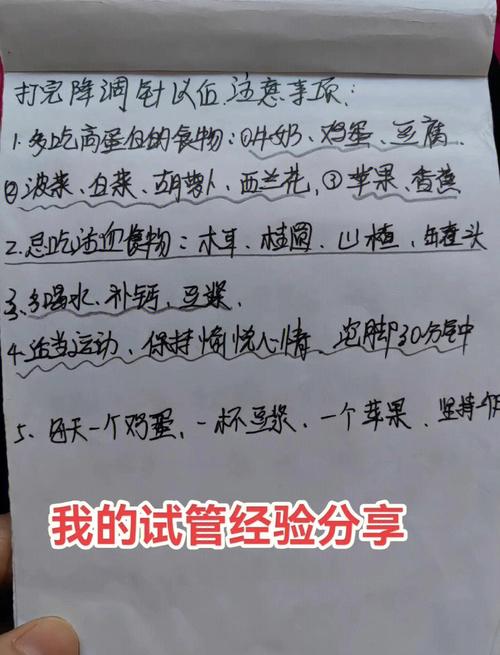 打完降调针以后注意事项：
1. 多吃高蛋白的食物：①牛奶、鸡蛋、豆腐、
②波菜、白菜、胡萝卜、西兰花，③苹果、香蕉
2. 忌吃活血食物：木耳、桂圆、山楂，
3. 多喝水、补钙，豆浆，
4. 适当运动、保持愉悦心情、泡脚30分钟
5. 每天一个鸡蛋，一杯豆浆，一个苹果，坚持一个
我的试管经验分享